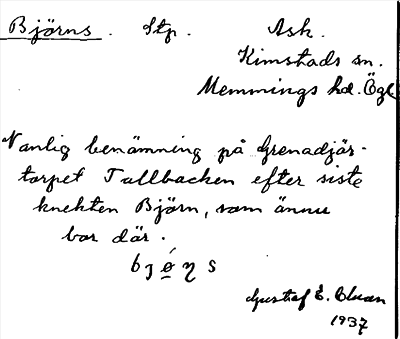 Björns. Stp. Ask.
Kimstads sn.
Memmings hd. Ögl
Vanlig benämning på Grenadjär-
torpet Tallbacken efter siste
knekten Björn, som ännu
bor där.
Gustaf E.
1937